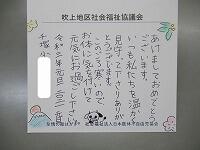 吹上地区社会福祉協議会
あけましておめでとう
ございます。
いつも私たちを温かく
見守って下さりありが
とうございます。
まだまだ寒いので
お体に気を付けて
元気にお過ごし下さい
令和三年元旦 二〇二一年